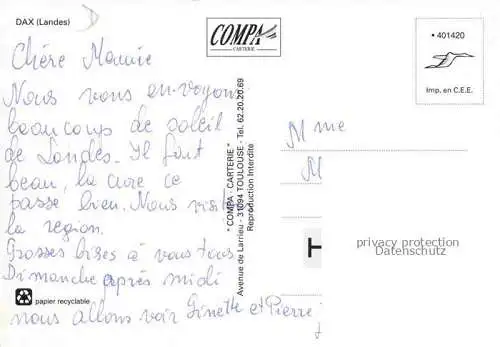 DAX (Landes)
COMPA
CARTERIE
• 401420
Imp. en C.E.E.
Chère Mamie
Nous vous envoyons
beaucoup de soleil
de Landes. Il fait
beau, la cure ce
passe bien. Nous visit
la region.
Grosses bises à vous tous.
Dimanche après midi
nous allons voir Ginette et Pierre
" COMPA - CARTERIE "
Avenue de Larrieu - 31094 TOULOUSE - Tel. 62.20.20.69
Reproduction Interdite
Mme
M
privacy protection
Datenschutz
papier recyclable